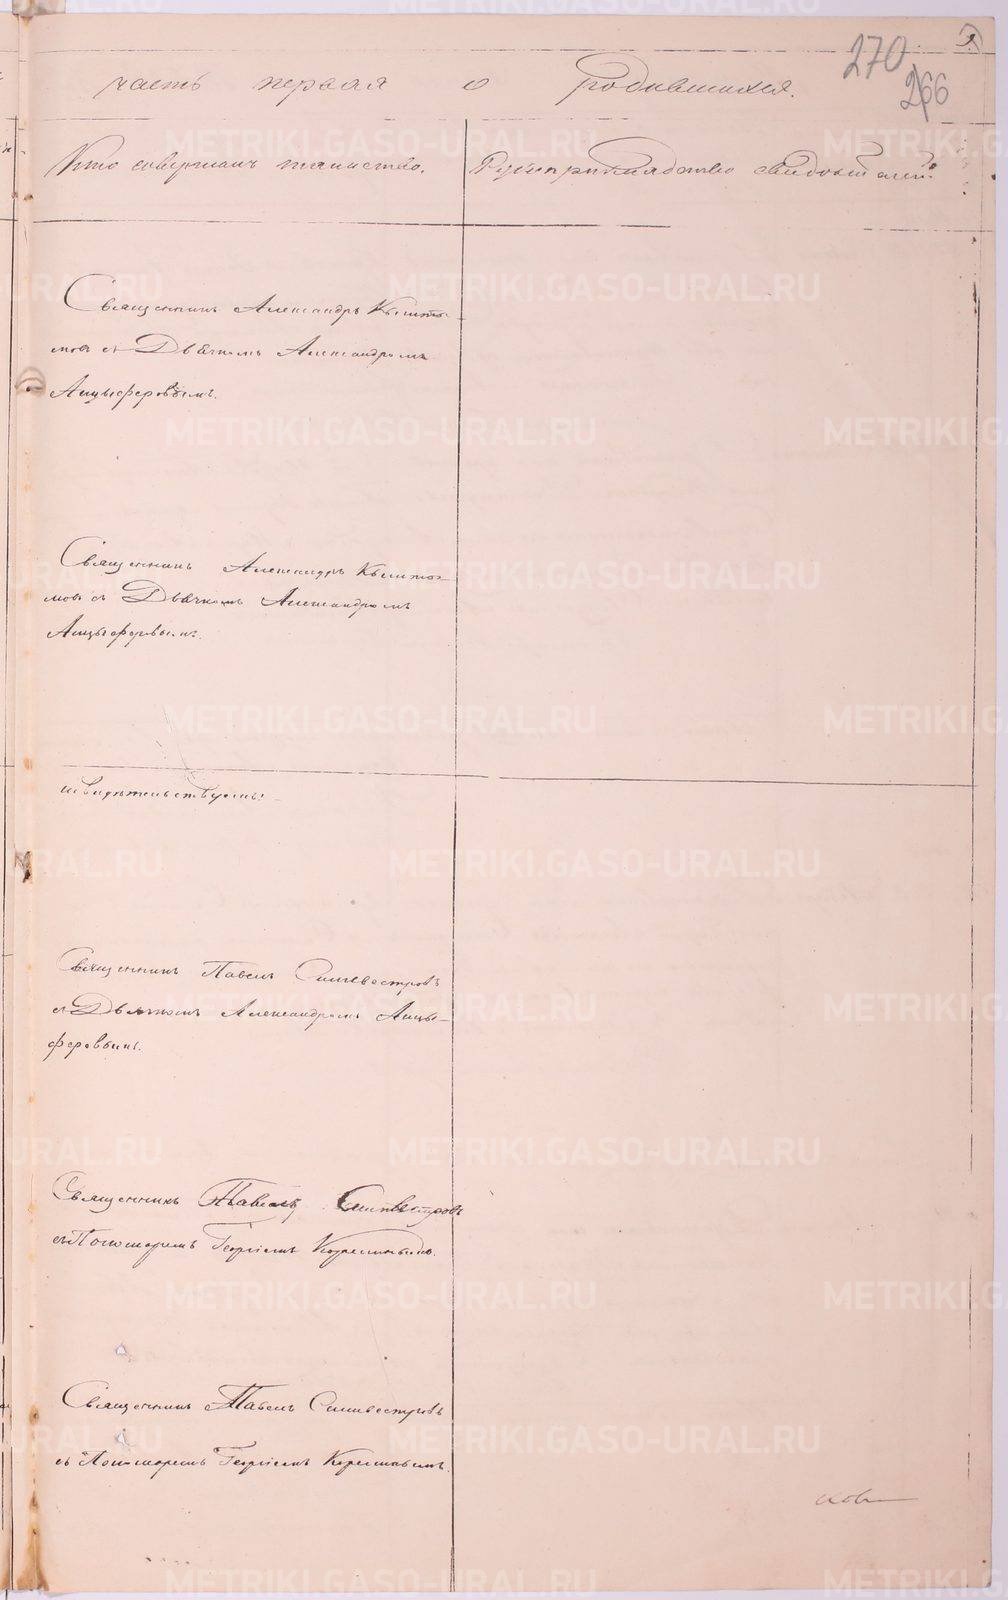 270
266
часть первая о родившихся.
Кто совершалъ таинство.
Рукоприкладство свидѣтелей
Священникъ Александръ Кышты-
мовъ съ Дьячкомъ Александромъ
Анцыферовымъ.
Священникъ Александръ Кышты-
мовъ съ Дьячкомъ Александромъ
Анцыферовымъ.
свидѣтельствуемъ:
Священникъ Павелъ Сильвестровъ
съ Дьячкомъ Александромъ Анцы-
феровымъ.
Священникъ Павелъ Сильвестровъ
съ Пономаремъ Георгіемъ
Священникъ Павелъ Сильвестровъ
съ Пономаремъ Георгіемъ
METRIKI.GASO-URAL.RU